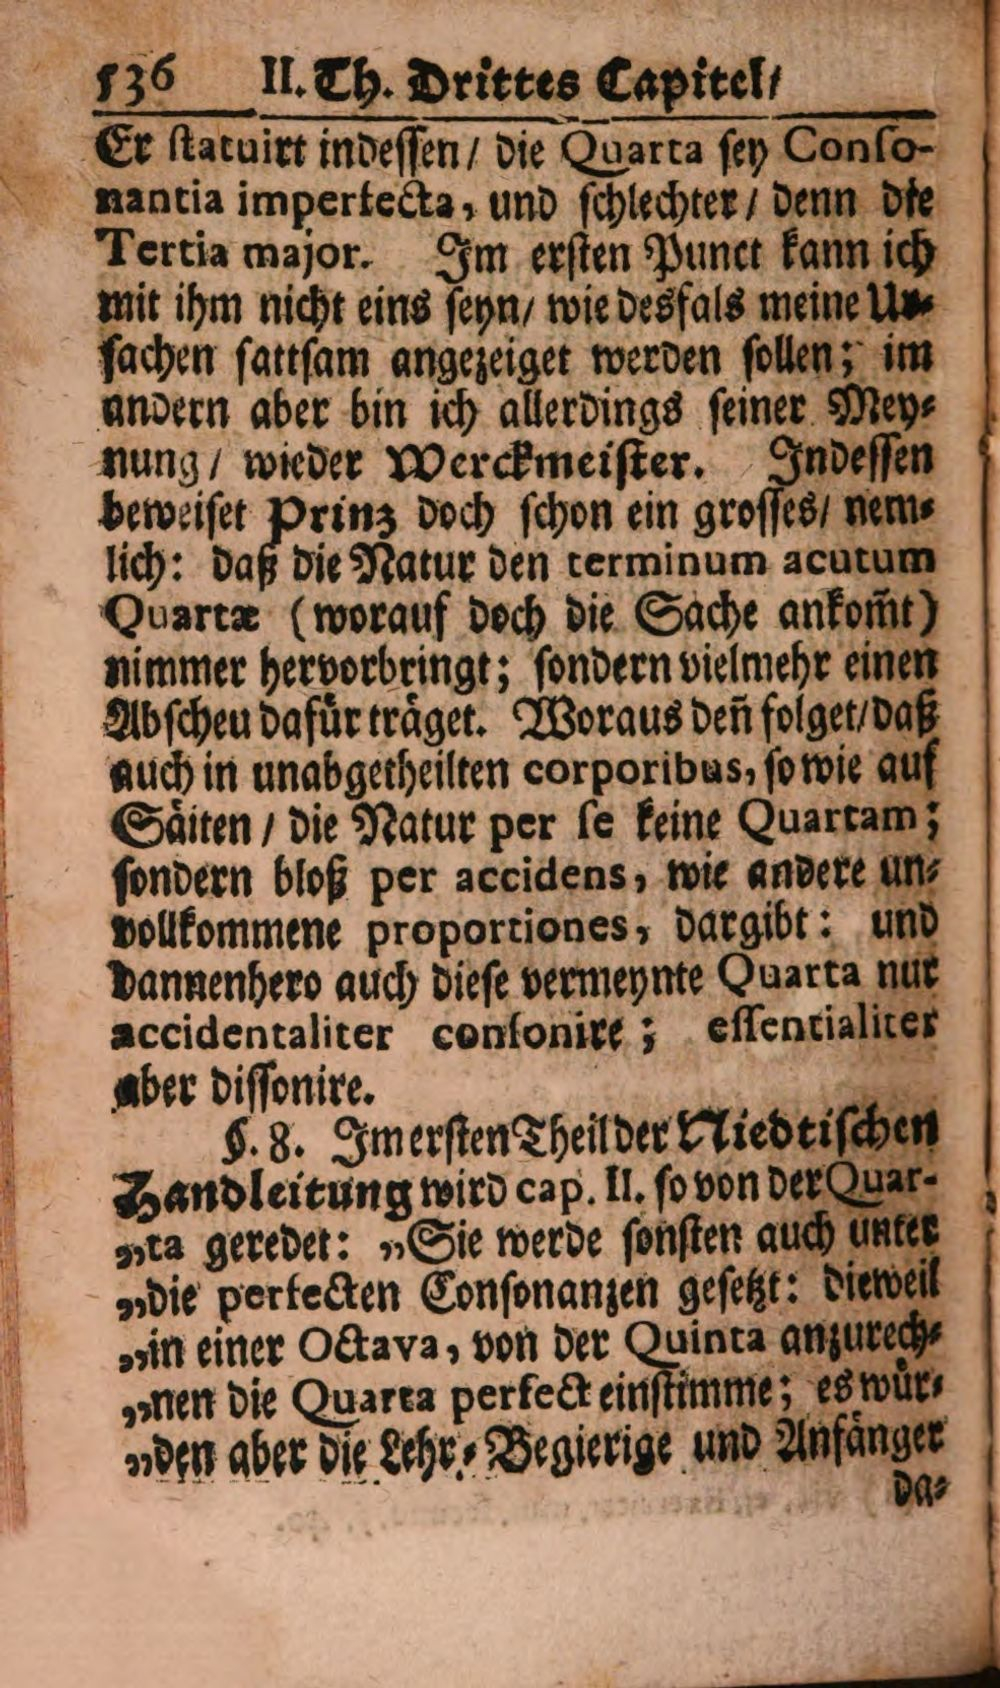 536 II. Th. Drittes Capitel/
Er statuirt indessen / die Quarta sey Conso-
nantia imperfecta, und schlechter / denn die
Tertia major. Im ersten Punct kann ich
mit ihm nicht eins seyn/ wie desfals meine Ur-
sachen sattsam angezeiget werden sollen; im
andern aber bin ich allerdings seiner Mey-
nung / wieder Werckmeister. Indessen
beweiset Prinz doch schon ein grosses/ nem-
lich: daß die Natur den terminum acutum
Quartæ (worauf doch die Sache ankom̃t)
nimmer hervorbringt; sondern vielmehr einen
Abscheu dafür träget. Woraus deñ folget/daß
auch in unabgetheilten corporibus, so wie auf
Säiten / die Natur per se keine Quartam;
sondern bloß per accidens, wie andere un-
vollkommene proportiones, dargibt: und
dannenhero auch diese vermeynte Quarta nur
accidentaliter consonire; essentialiter
aber dissonire.
§. 8. Im ersten Theil der Niedtischen
Handleitung wird cap. II. so von der Quar-
„ta geredet: „Sie werde sonsten auch unter
„die perfecten Consonanzen gesetzt: dieweil
„in einer Octava, von der Quinta anzurech-
„nen die Quarta perfect einstimme; es wür-
„den aber die Lehr-Begierige und Anfänger
da-